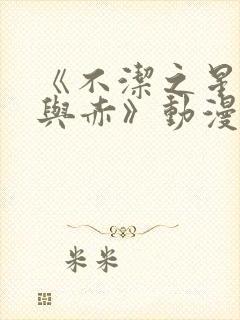 《不潔之星
與赤》動漫
米米